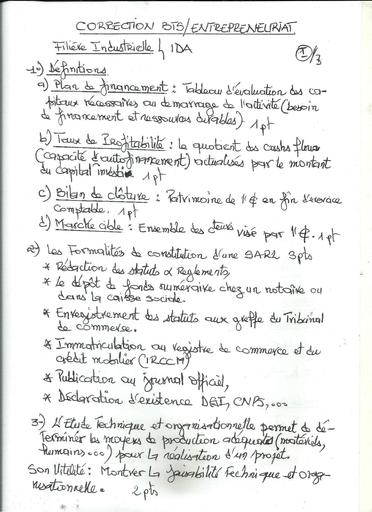 CORRECTION BTS/ENTREPRENEURIAT
Filière Industrielle IDA
I/3
1°) Définitions
a) Plan de financement : Tableau d'évaluation des ca-
pitaux nécessaires au demarrage de l'activité (besoin
de financement et ressources durables). 1pt
b) Taux de Profitabilité : le quotient des cashs flows
(capacité d'autofinancement) actualisés par le montant
du capital investi. 1pt
c) Bilan de clôture : Patrimoine de l'E en fin d'exercice
comptable. 1pt
d) Marché cible : Ensemble des visé par l'E. 1pt
2°) Les Formalités de constitution d'une SARL 3pts
* Rédaction des statuts et Reglements
* Le dépôt de fonds numeraire chez un notaire ou
dans la caisse sociale.
* Enregistrement des statuts aux greffe du Tribunal
de commerce.
* Immatriculation au registre de commerce et du
crédit mobilier (IRCCM)
* Publication au journal officiel,
* Déclaration d'existence DGI, CNPS,...
3-) L'Etude Technique et organisationnelle permet de dé-
terminer les moyens de production adéquats (matériels,
humains...) pour la réalisation d'un projet.
Son Utilité : Montrer la faisabilité technique et orga-
nisationnelle. 2pts